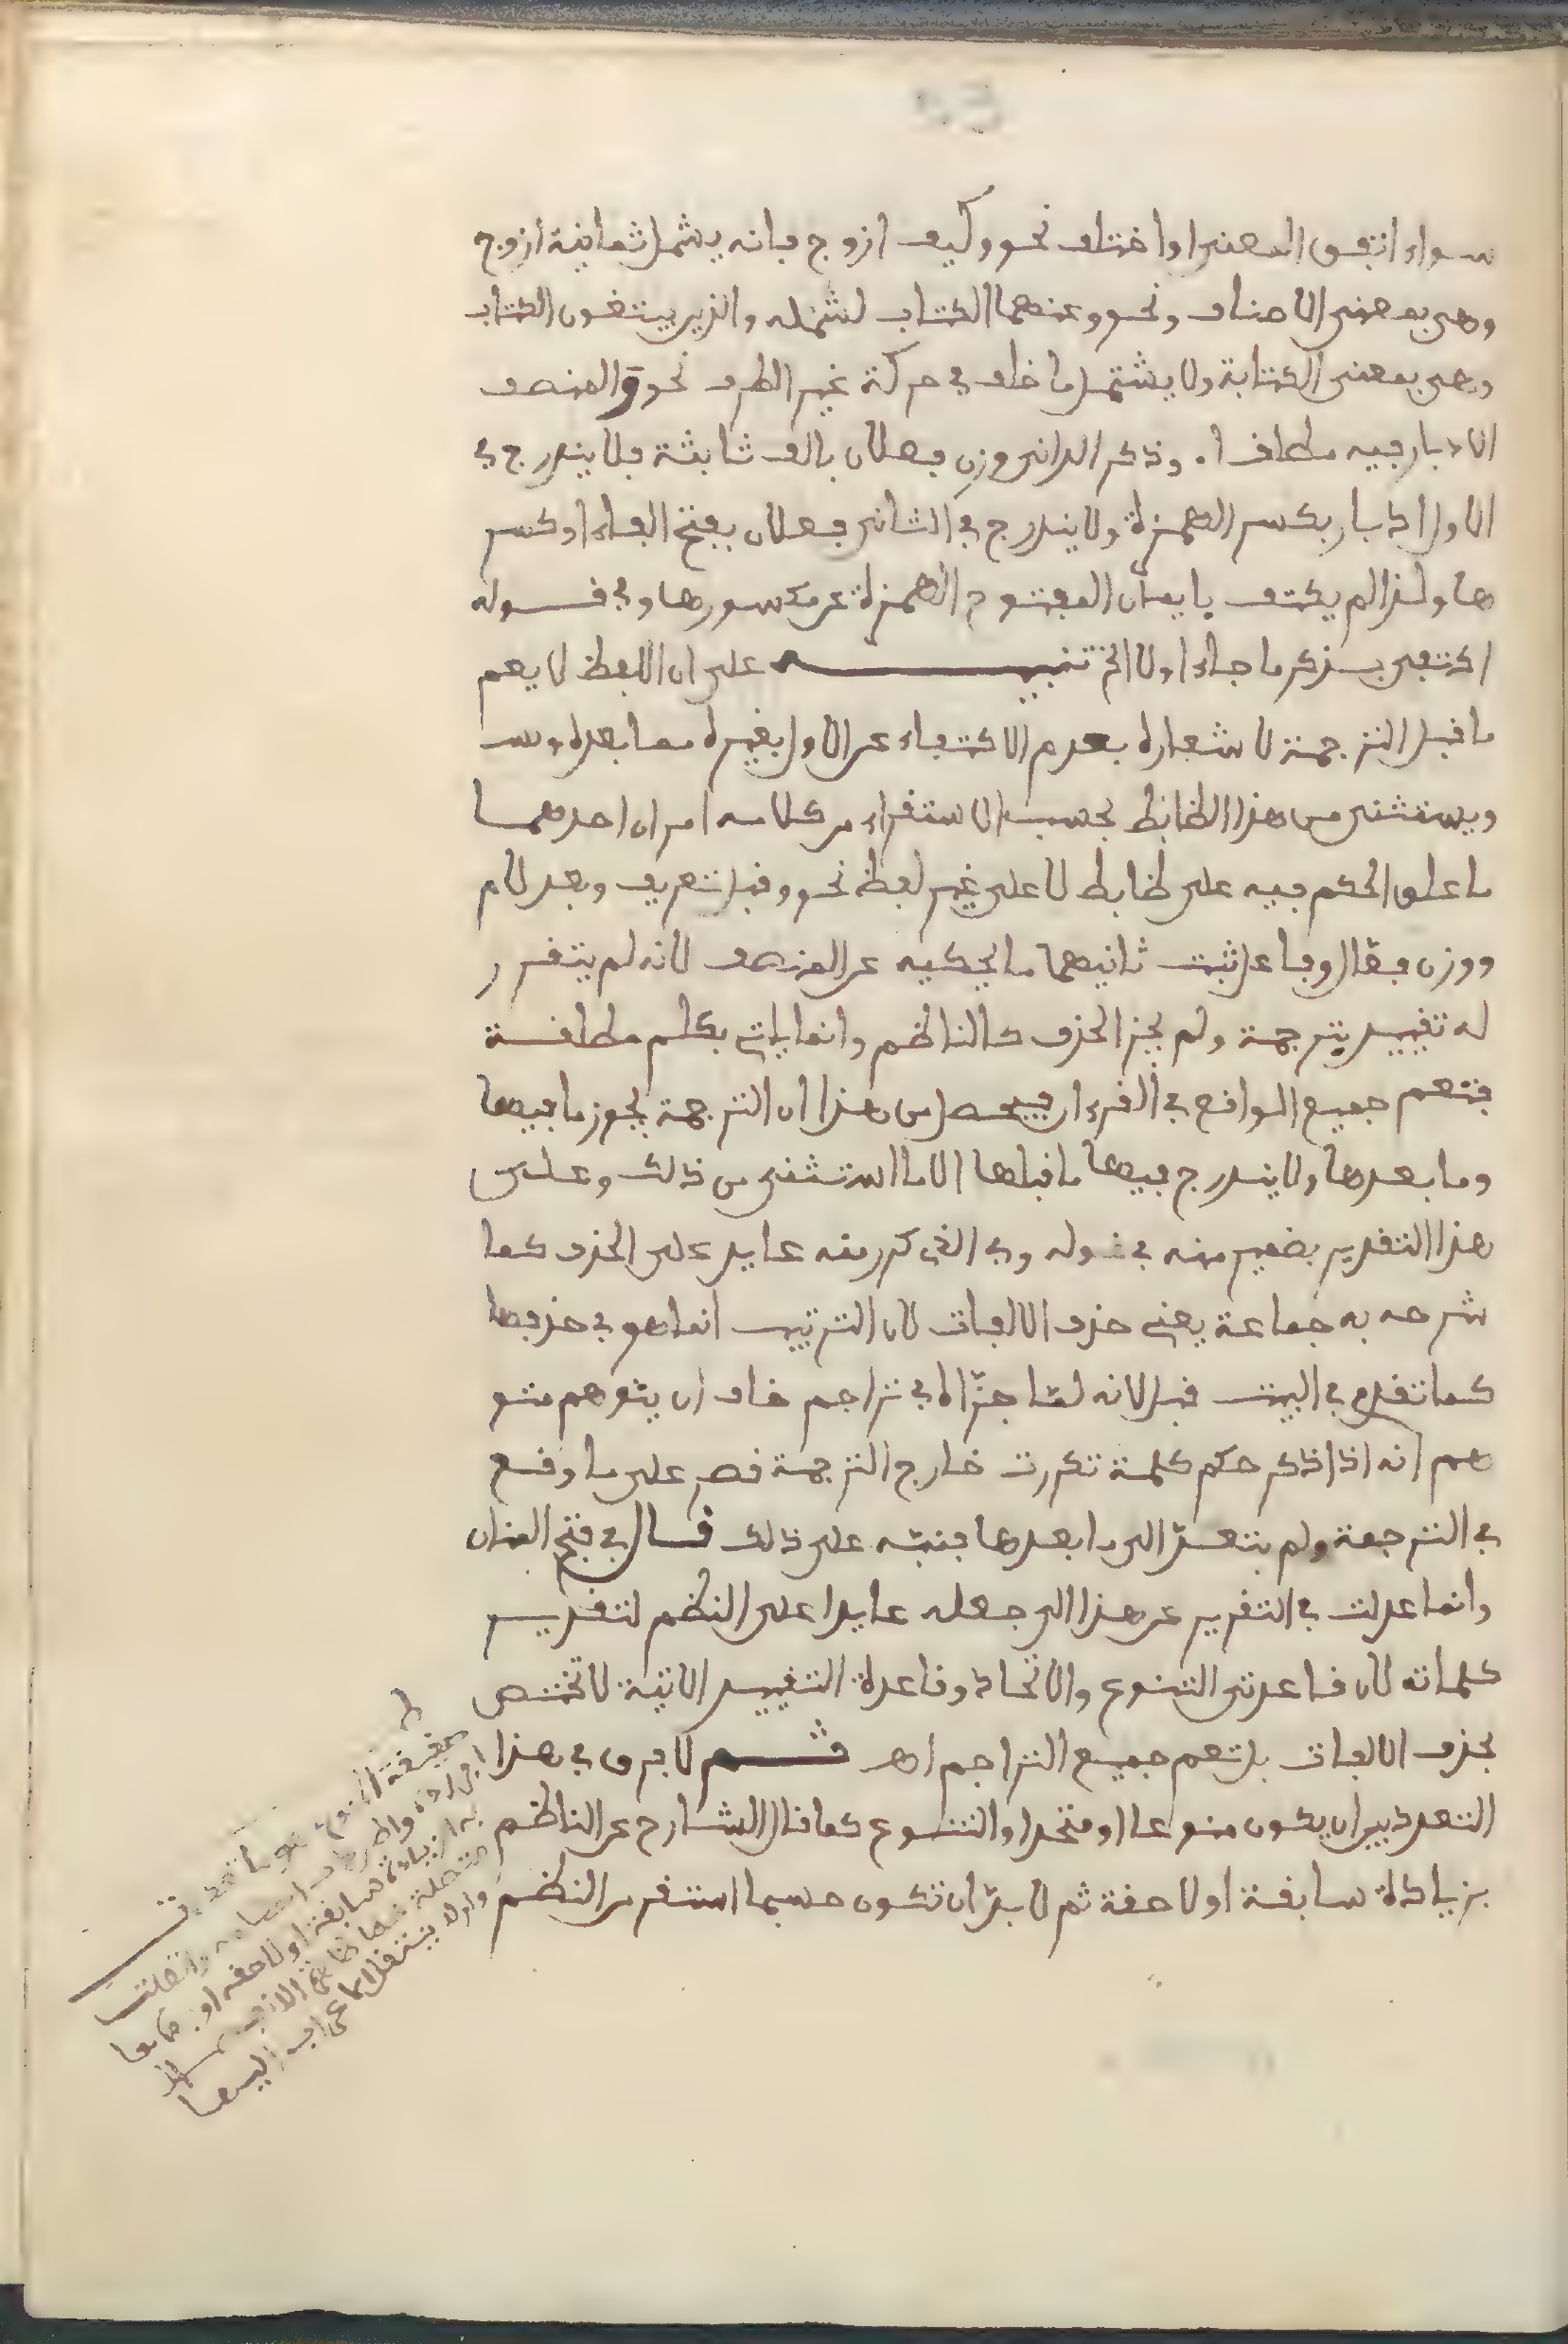 سواء اتفق المعنى او اختلف نحو وكيف ازوج فانه يشمل ثمانية ازوج
وهي بمعنى الاصناف ونحو وعنهما الكتاب لشمله والذين يبتغون الكتاب
وهي بمعنى الكتابة ولا يشتمل ما خلف في حركة غير الطرف نحو والمنصف
الادبار فيه مطلقا . وذكر الداني وزن فعلان بالف ثابتة فلا يندرج في
الاول ادبار بكسر الهمزة ولا يندرج في الثاني فعلان بفتح الفاء او كسر
ها ولذا لم يكتف بايمان المفتوح الهمزة عن مكسورها وفي قوله
اكتفي بذكر ما جاء اولا الخ تنبيه على ان اللفظ لا يعم
ما قبل الترجمة لاشعاره بعدم الاكتفاء عن الاول بغيره مما بعده
ويستثنى من هذا الظابط بحسب الاستقراء من كلامه امران احدهما
ما علق الحكم فيه على ظابط لا على غير لفظ نحو وقبل تعريف وبعد لام
ووزن فعال وفاعل ثبت ثانيهما ما يحكيه عن المنصف لانه لم يتقرر
له تقييد بترجمة ولم يجز الحذف كالناظم وانما ياتي بكلم مطلقة
فتعم جميع الواقع في القرءان فيحصل من هذا ان الترجمة يحوز ما فيها
وما بعدها ولا يندرج فيها ما قبلها الا ما استثنى من ذلك وعلى
هذا التقدير بضمير منه في قوله وفي الذي كرر منه عايد على الحذف كما
شرحه به جماعة يعني حذف الالفات لان الترتيب انما هو في حذفها
كما تقدم في البيت قبل لانه لما جزاه في تراجم خاف ان يتوهم متو
هم انه اذا ذكر حكم كلمة تكررت خارج الترجمة قصر على ما وقع
في الترجمة ولم يتعد الى ما بعدها فنبه على ذلك قال في فتح المنان
وانما عدلت في التقرير عن هذا الى جعله عايدا على النظم لتقدير
كلماته لان قاعدتي التنوع والاتحاد وقاعدة التقييد الاتية لا تختص
بحذف الالفات بل تعم جميع التراجم اهـ ثم لا فرق في هذا
التعدد بين ان يكون منوعا او متحدا والتنوع كما قال الشارح عن الناظم
بزيادة سابقة او لاحقة ثم لا بد ان تكون حسبما استقر من النظم